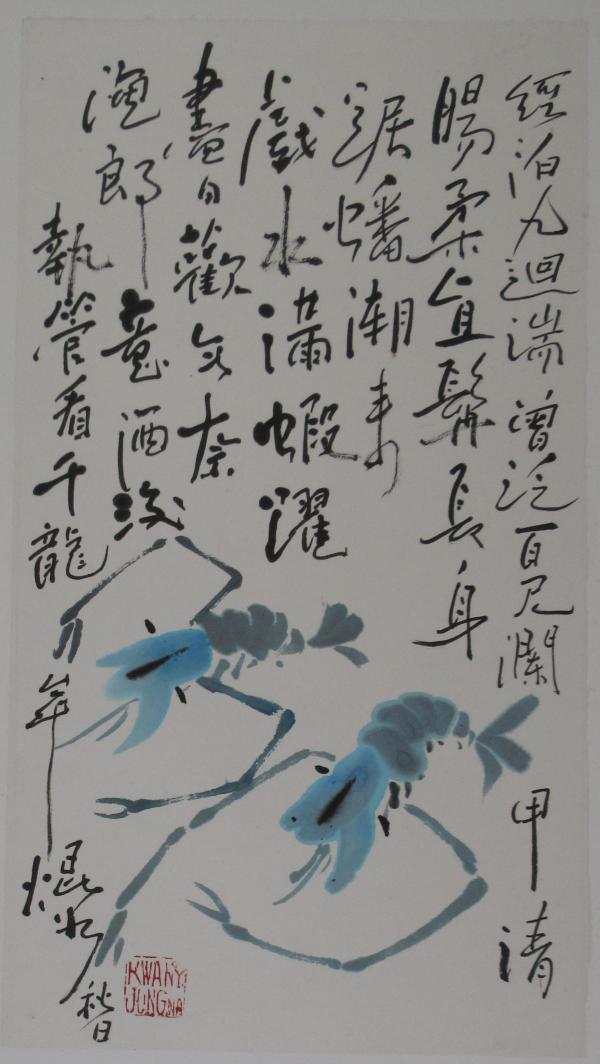 經泊九迴湍曾泛百尺瀾
甲清
腸柔宜長身
踞蟠潮來
戲水滿蝦躍
盡日歡無奈
漁郎意酒後
執管看千龍
年焜
秋日
KWANY
JUNG NA